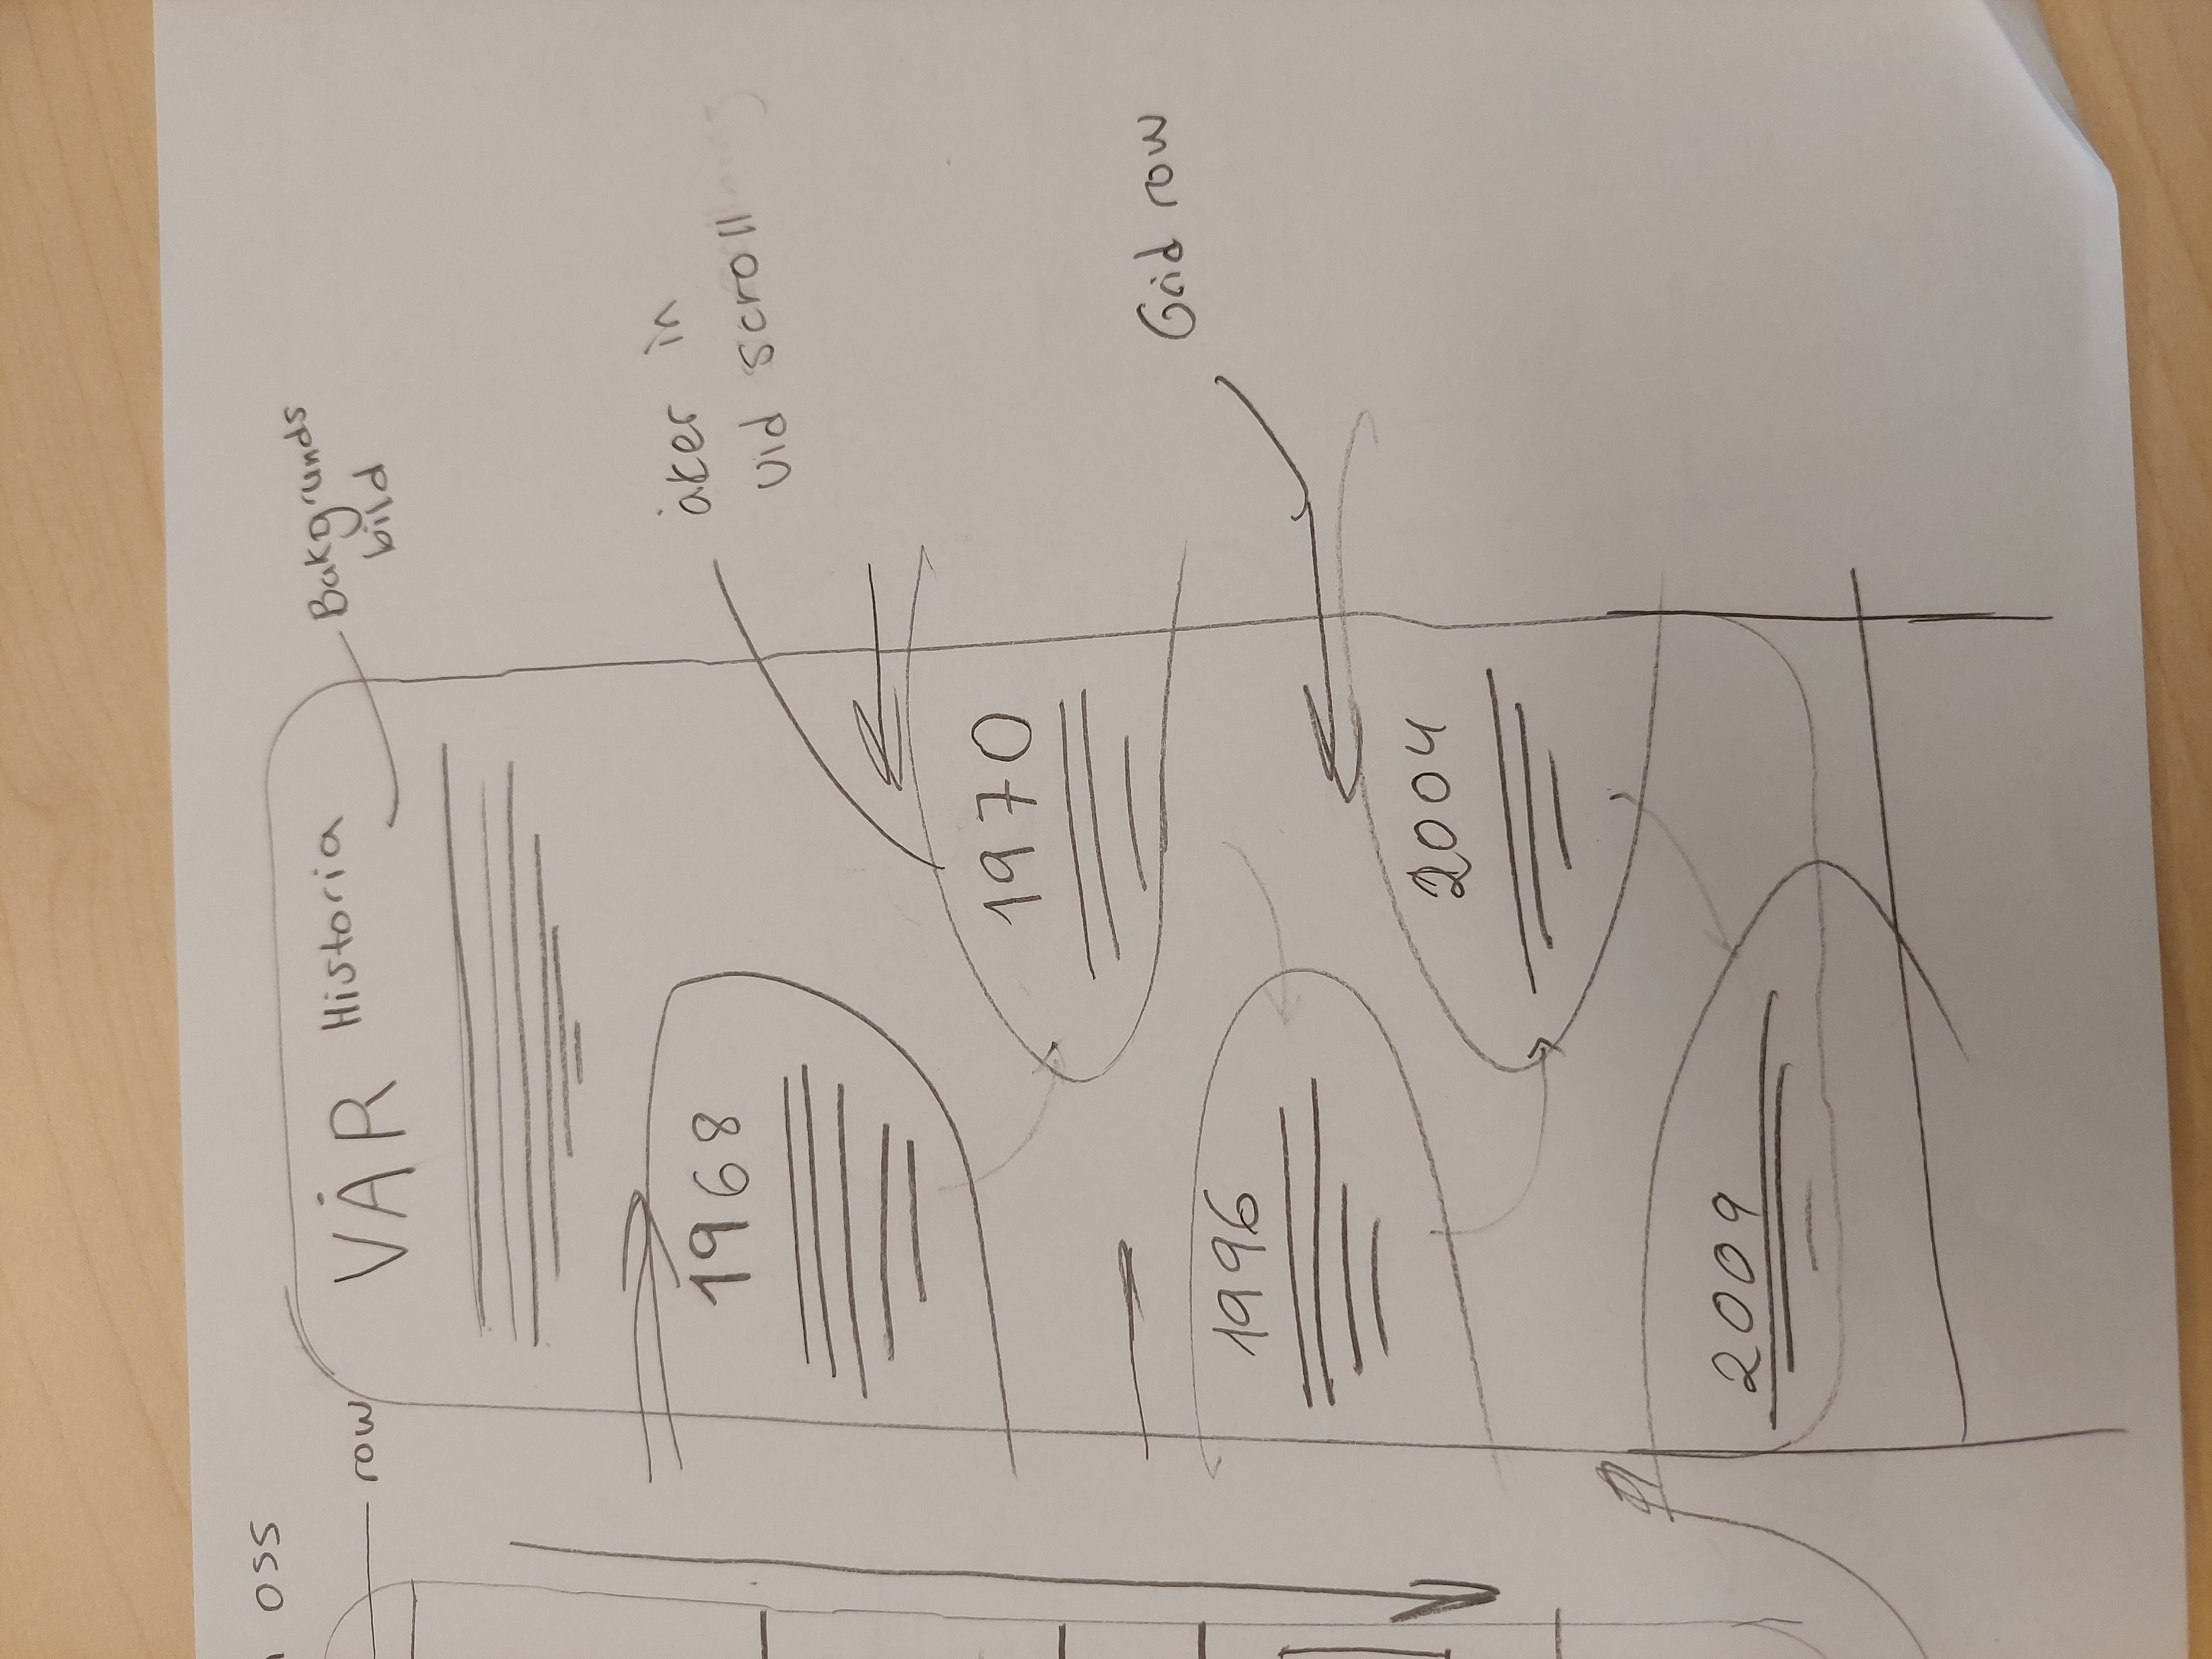 oss
row
VÅR Historia
Bakgrunds
bild
1968
åker in
vid scroll
1970
Grid row
1996
2004
2009